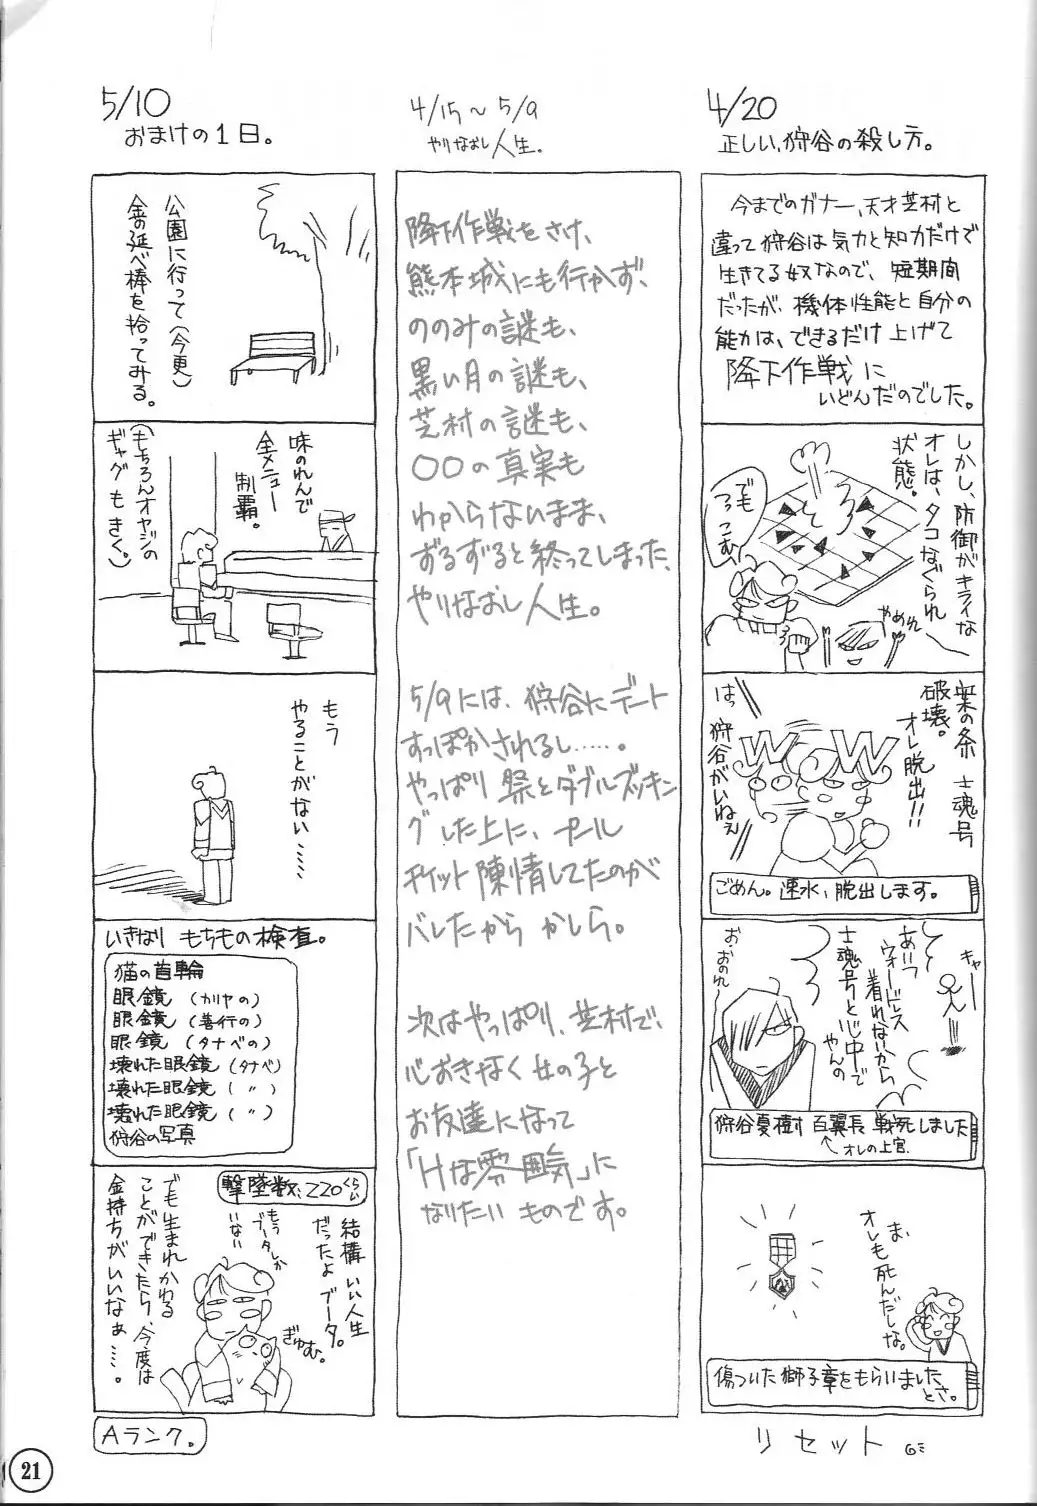 4/20
正しい、狩谷の殺し方。
今までのガナー、天才芝村と
違って狩谷は気力と知力だけで
生きてる奴なので、短期間
だったが、機体性能と自分の
能力は、できるだけ上げて
降下作戦に
いどんだのでした。
しかし、防御がキライな
オレは、タコなぐられ
状態。
でも
つっこむ
やめれ
策の条 士魂号
破壊。
オレ脱出!!
WW
はっ
狩谷がいねぇ
ごめん。速水、脱出します。
キャー
あいつ
ウォードレス
着れないから
士魂号といじ中で
やんの
お、おのれー
狩谷夏樹 百翼長 戦死しました
オレの上官
ま、
オレも死んだしな。
傷ついた獅子章をもらいました
とさ。
リセット
4/15〜5/9
やりなおし人生.
降下作戦をさけ、
熊本城にも行かず、
ののみの謎も、
黒い月の謎も、
芝村の謎も、
○○の真実も
わからないまま、
ずるずると終ってしまった、
やりなおし人生。
5/9には、狩谷にデート
すっぽかされるし……。
やっぱり祭とダブルブッキン
グした上に、プール
チケット陳情してたのが
バレたからかしら。
次はやっぱり、芝村で、
心おきなく女の子と
お友達になって
「Hな雰囲気」に
なりたいものです。
5/10
おまけの1日。
公園に行って(今更)
金の延べ棒を拾ってみる。
味のれんで
全メニュー
制覇。
(もちろんオヤジの
ギャグもきく。)
もう
やることがない……
いきなりもちもの検査。
猫の首輪
眼鏡(カリヤの)
眼鏡(善行の)
眼鏡(タナベの)
壊れた眼鏡(タナベ)
壊れた眼鏡(〃)
壊れた眼鏡(〃)
狩谷の写真
撃墜数、220くらい
結構いい人生
だったよブータ。
もう
ブータしか
いない
ぎゅむ。
でも生まれかわる
ことができたら、今度は
金持ちがいいなぁ…。
Aランク。
21